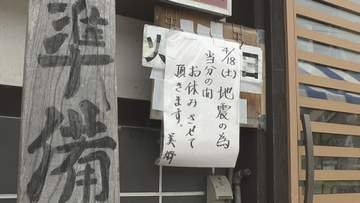 準備
火 日
4/18(土)地震の為
当分の間
お休みさせて
頂きます。